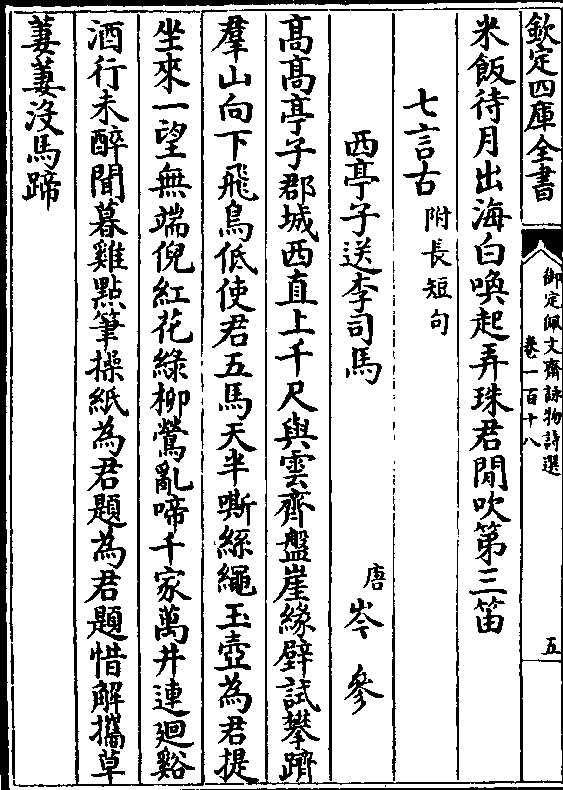 欽定四庫全書
御定佩文齋詠物詩選
卷一百十八
五
米飯待月出海白喚起弄珠君閒吹第三笛
七言古附長短句
西亭子送李司馬
唐岑參
高高亭子郡城西直上千尺與雲齊盤崖緣壁試攀躋
羣山向下飛鳥低使君五馬天半嘶絲繩玉壺為君提
坐來一望無端倪紅花綠柳鶯亂啼千家萬井連廻谿
酒行未醉聞暮雞點筆操紙為君題為君題惜解攜草
萋萋沒馬蹄